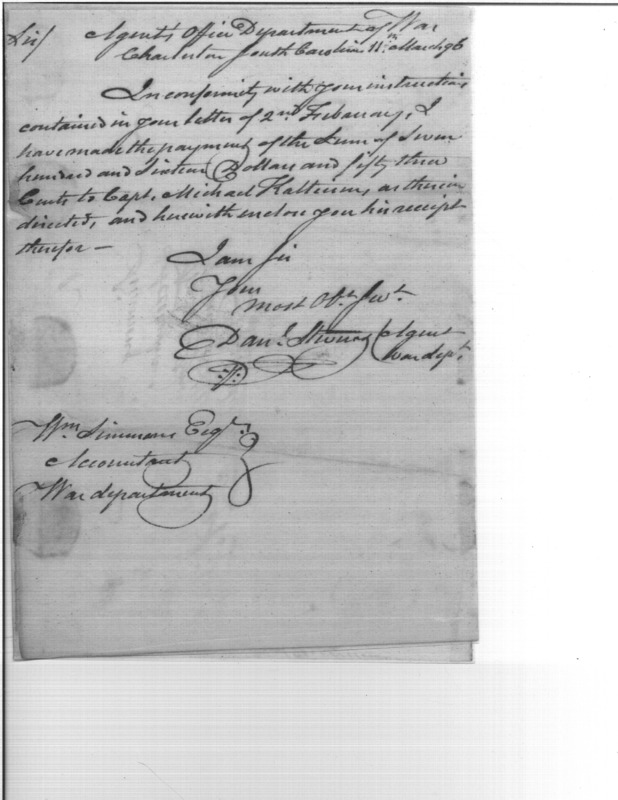 Sir/ Agent's Office Department of War
Charleston South Carolina 11th March 96
In conformity with your instructions
contained in your letter of 2nd Feberary, I
have made the payment of the Sum of Seven
hundred and Sixteen Dollars and fifty three
Cents to Capt. Michael Kalteisen, as therein
directed, and herewith enclose you his receipt
therefor —
I am Sir
Your
most Obt. Servt.
Danl. Stevens Agent
War dept.
Wm. Simmons Esqr.
Accountant
War department